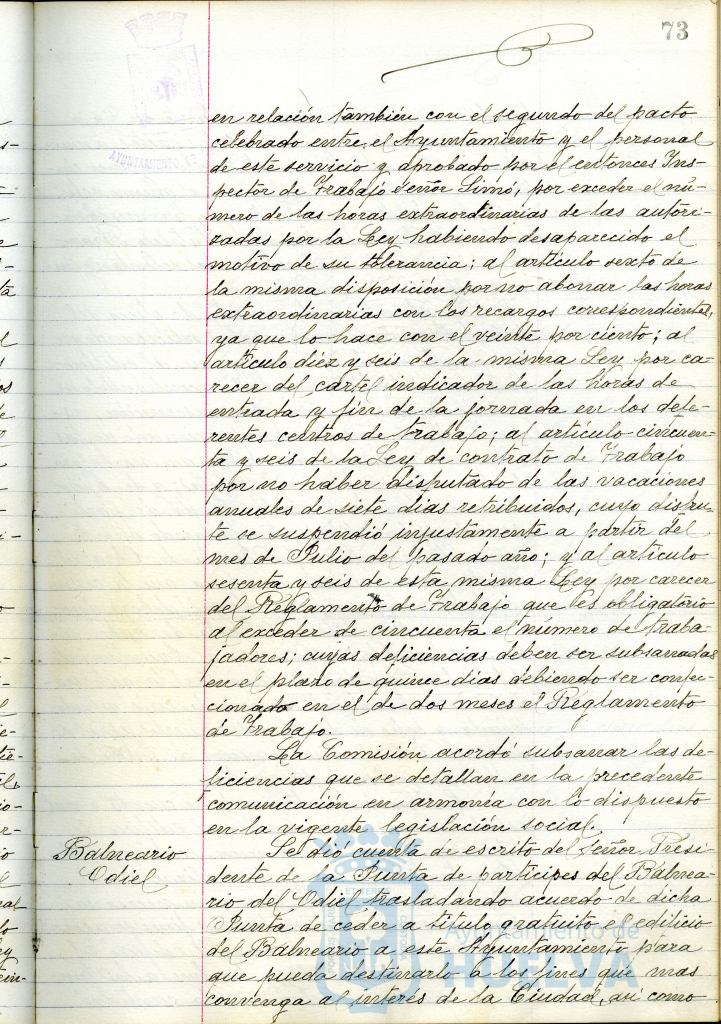 73
en relación también con el segundo del pacto
celebrado entre el Ayuntamiento y el personal
de este servicio y aprobado por el entonces Ins-
pector de Trabajo señor Simó, por exceder el nú-
mero de las horas extraordinarias de las autori-
zadas por la Ley habiendo desaparecido el
motivo de su tolerancia; al artículo sexto de
la misma disposición por no abonar las horas
extraordinarias con los recargos correspondientes,
ya que lo hace con el veinte por ciento; al
artículo diez y seis de la misma Ley por ca-
recer del cartel indicador de las horas de
entrada y fin de la jornada en los dife-
rentes centros de trabajo; al artículo cincuen-
ta y seis de la Ley de contrato de Trabajo
por no haber disfrutado de las vacaciones
anuales de siete dias retribuidos, cuyo disfru-
te se suspendió injustamente a partir del
mes de Julio del pasado año; y al artículo
sesenta y seis de esta misma Ley por carecer
del Reglamento de Trabajo que es obligatorio
al exceder de cincuenta el número de traba-
jadores; cuyas deficiencias deben ser subsanadas
en el plazo de quince dias debiendo ser confec-
cionado en el de dos meses el Reglamento
de Trabajo.
La Comisión acordó subsanar las de-
ficiencias que se detallan en la precedente
comunicación en armonía con lo dispuesto
en la vigente legislación social.
Balneario
Odiel
Se dió cuenta de escrito del señor Presi-
dente de la Junta de partícipes del Balnea-
rio del Odiel trasladando acuerdo de dicha
Junta de ceder a título gratuito el edificio
del Balneario a este Ayuntamiento para
que pueda destinarlo a los fines que mas
convenga al interés de la Ciudad, así como
Ayuntamiento de
HUELVA